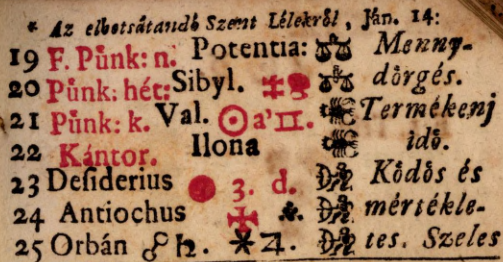 * Az elbotsátandó Szent Lélekről, Ján. 14:
19 F. Pűnk: n. Potentia: ♎ Menny-
20 Pűnk: hét: Sibyl. ♎ dörgés.
21 Pűnk: k. Val. ☉ a' ♊. ♏ Termékenj
22 Kántor. Ilona ♏ idő.
23 Desiderius 3. d. Kődős és
24 Antiochus ✠ mértékle-
25 Orbán ☍ ♄. ⚹ ♃. tes. Szeles